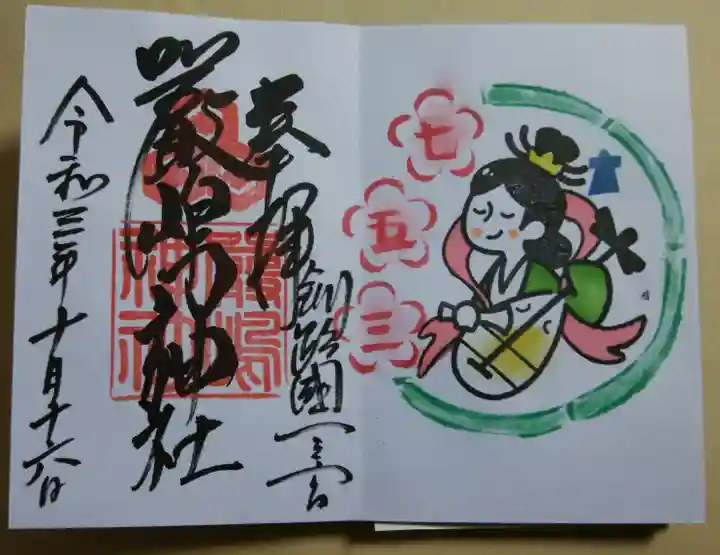 奉拝
釧路國一之宮
厳島神社
嚴嶋
神社
令和三年十月十六日
七
五
三